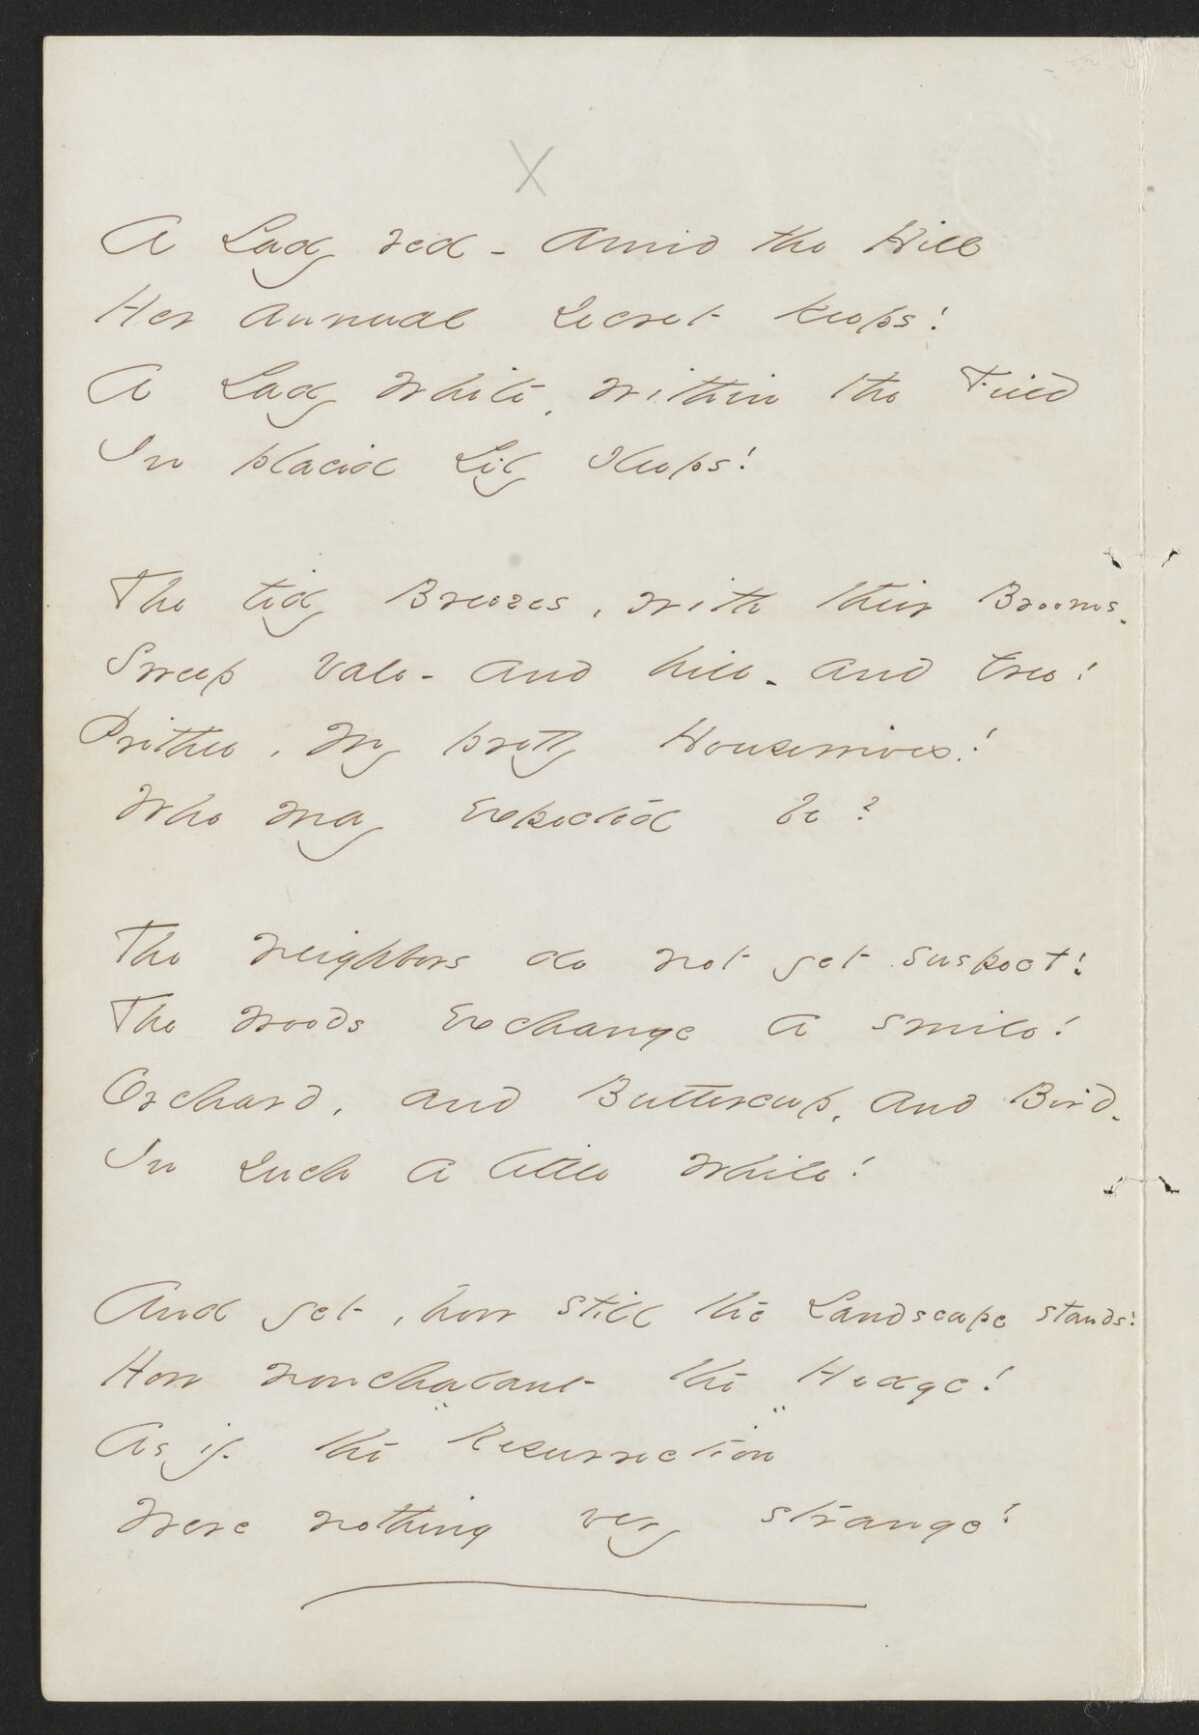 X
A Lady red - amid the Hill
Her annual secret keeps!
A Lady white, within the Field
In placid Lily sleeps!
The tidy Breezes, with their Brooms -
Sweep vale - and hill - and tree!
Prithee, my pretty Housewives!
Who may expected be?
The neighbors do not yet suspect!
The woods exchange a smile!
Orchard, and Buttercup, and Bird -
In such a little while!
And yet, how still the Landscape stands!
How nonchalant the Hedge!
As if the "Resurrection"
Were nothing very strange!